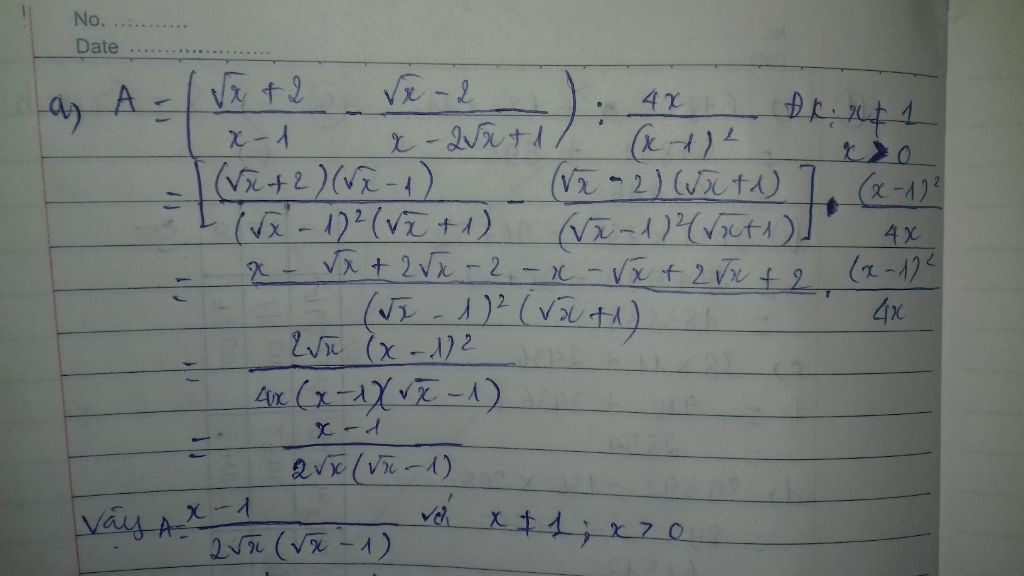 No. ............
Date ........................
a) A = ( (√x + 2)/(x - 1) - (√x - 2)/(x - 2√x + 1) ) : 4x/(x - 1)² ĐK: x ≠ 1
x > 0
= [ (√x + 2)(√x - 1)/((√x - 1)²(√x + 1)) - (√x - 2)(√x + 1)/((√x - 1)²(√x + 1)) ] . (x - 1)²/4x
= (x - √x + 2√x - 2 - x - √x + 2√x + 2)/((√x - 1)²(√x + 1)) . (x - 1)²/4x
= 2√x (x - 1)²/(4x(x - 1)(√x - 1))
= (x - 1)/(2√x(√x - 1))
Vậy A = (x - 1)/(2√x(√x - 1)) với x ≠ 1 ; x > 0